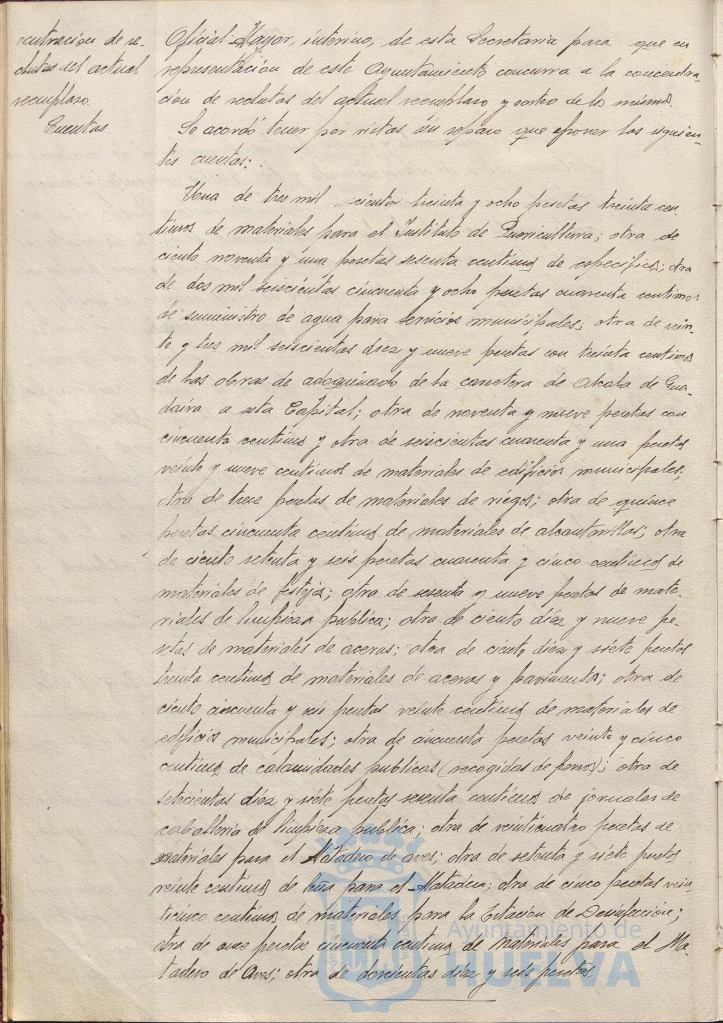 centración de re-
clutas del actual
reemplazo.
Cuentas
Oficial Mayor, interino, de esta Secretaria para que en
representación de este Ayuntamiento concurra a la concentra-
ción de reclutas del actual reemplazo y sorteo de lo mismo.
Se acordó tener por vistas sin reparo que oponer las siguien-
tes cuentas:
Una de tres mil ciento treinta y ocho pesetas treinta cen-
timos de materiales para el Instituto de Puericultura; otra de
ciento noventa y una pesetas sesenta centimos de especificos; otra
de dos mil seiscientas cincuenta y ocho pesetas cuarenta centimos
de suministro de agua para servicios municipales; otra de vein-
te y tres mil seiscientas diez y nueve pesetas con treinta centimos
de las obras de adoquinado de la carretera de Alcala de Gua-
daira a esta Capital; otra de noventa y nueve pesetas con
cincuenta centimos y otra de seiscientas cuarenta y una pesetas
veinte y nueve centimos de materiales de edificios municipales;
otra de trece pesetas de materiales de riegos; otra de quince
pesetas cincuenta centimos de materiales de alcantarillas; otra
de ciento setenta y seis pesetas cuarenta y cinco centimos de
materiales de festejos; otra de sesenta y nueve pesetas de mate-
riales de limpieza publica; otra de ciento diez y nueve pe-
setas de materiales de aceras; otra de ciento diez y siete pesetas
treinta centimos de materiales de aceras y pavimentos; otra de
ciento cincuenta y seis pesetas veinte centimos de materiales de
edificios municipales; otra de cincuenta pesetas veinte y cinco
centimos de calamidades publicas (recogidas de perros); otra de
setecientas diez y siete pesetas sesenta centimos de jornales de
caballeria de limpieza publica; otra de veinticuatro pesetas de
materiales para el Matadero de aves; otra de setenta y siete pesetas
veinte centimos de leña para el Matadero; otra de cinco pesetas vein-
ticinco centimos de materiales para la Estación de Desinfección;
otra de once pesetas cincuenta centimos de materiales para el Ma-
tadero de Aves; otra de doscientas diez y siete pesetas
Ayuntamiento de
HUELVA